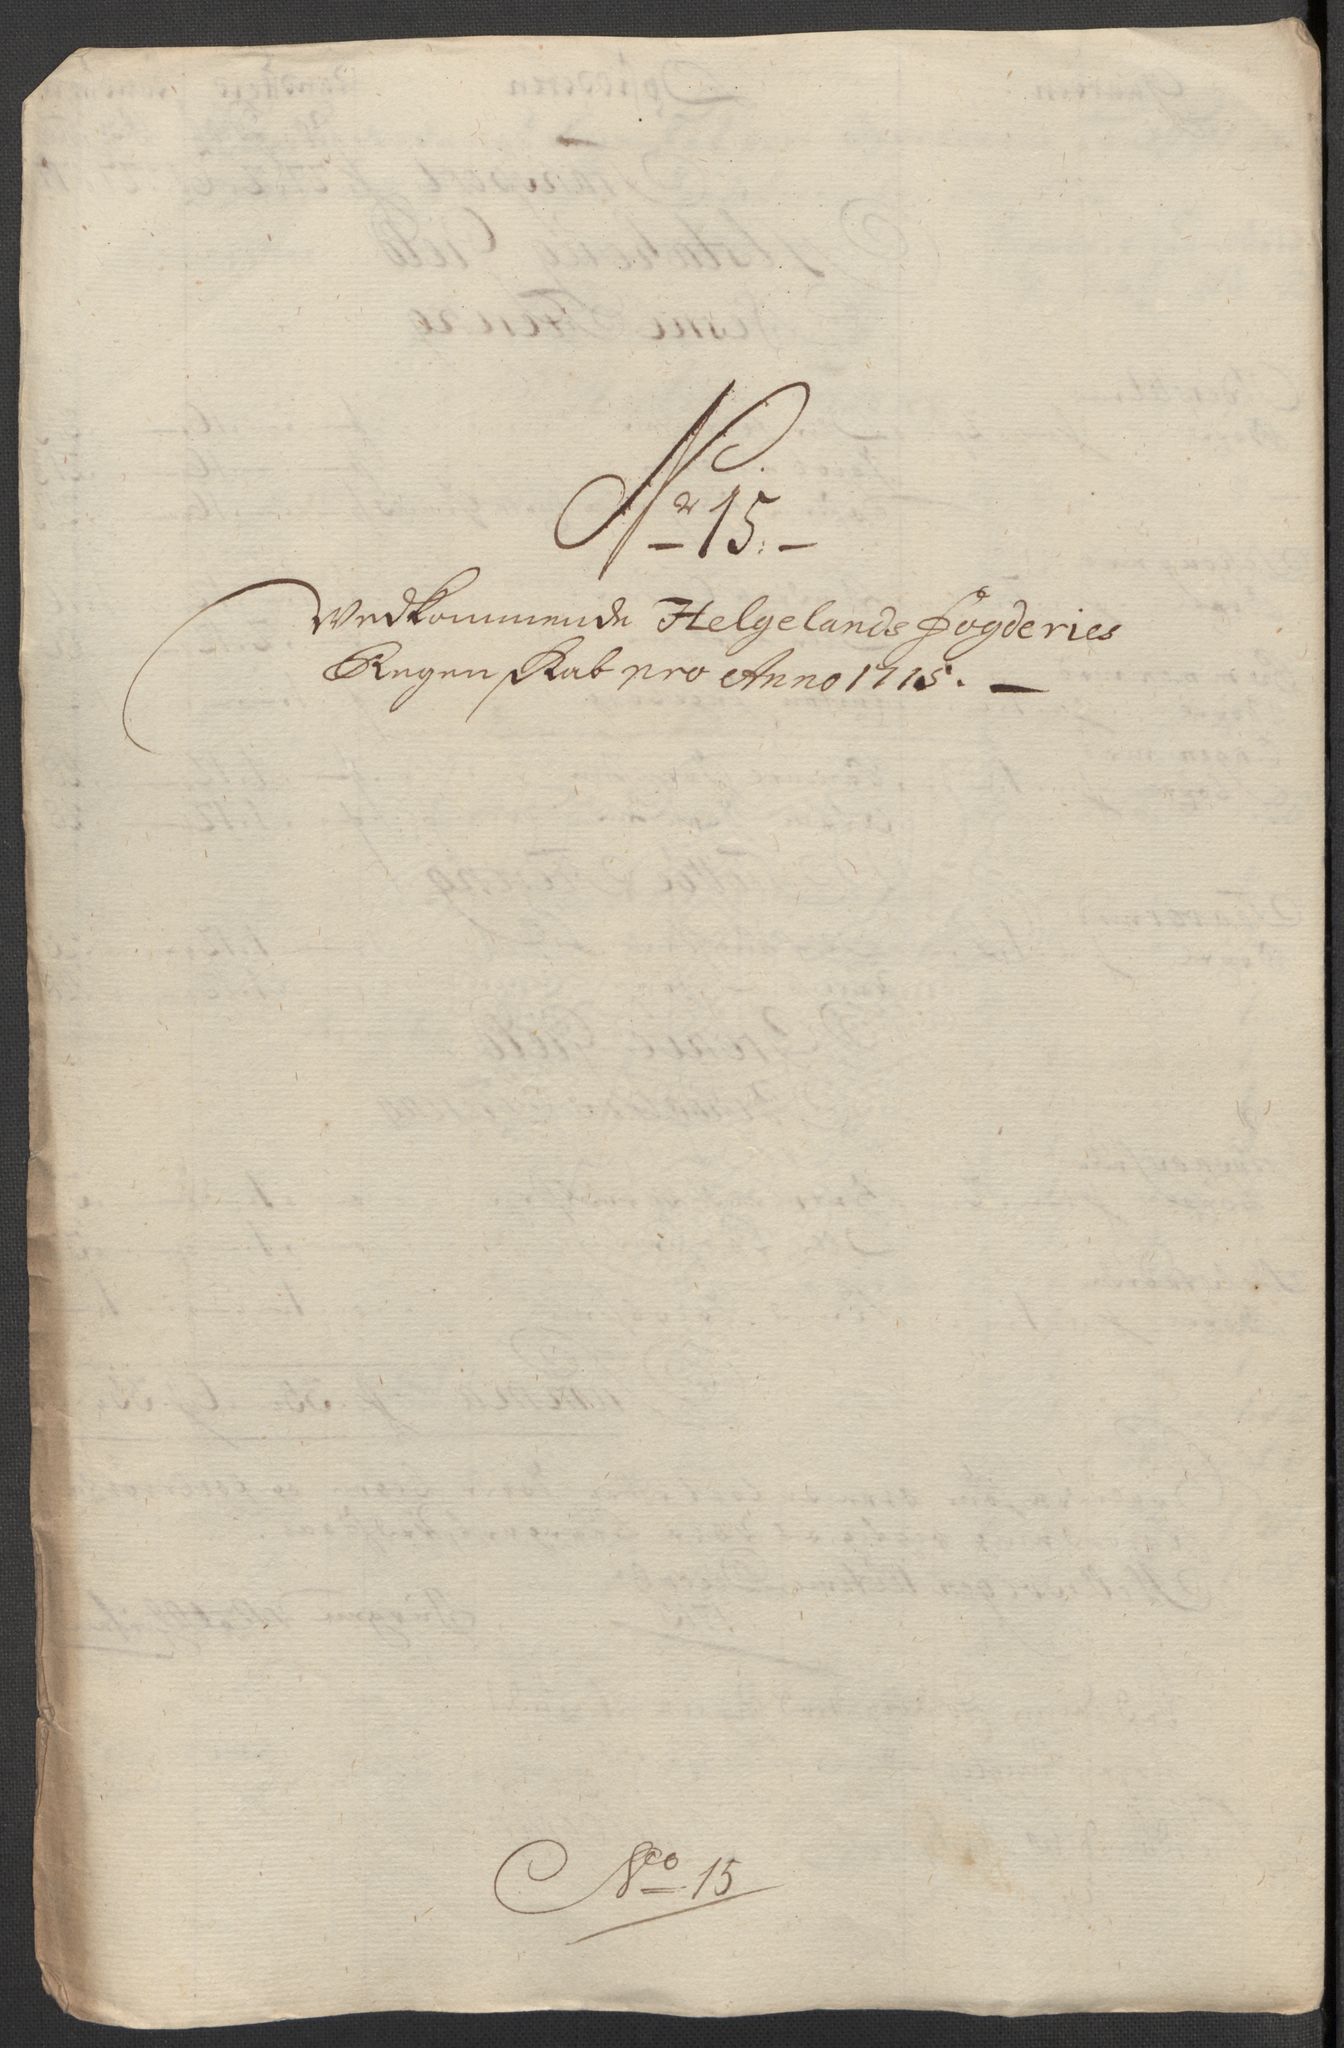 Nr 15.
Vedkommende Helgelands fogderies
Regenskab pro Anno 1715.
No 15